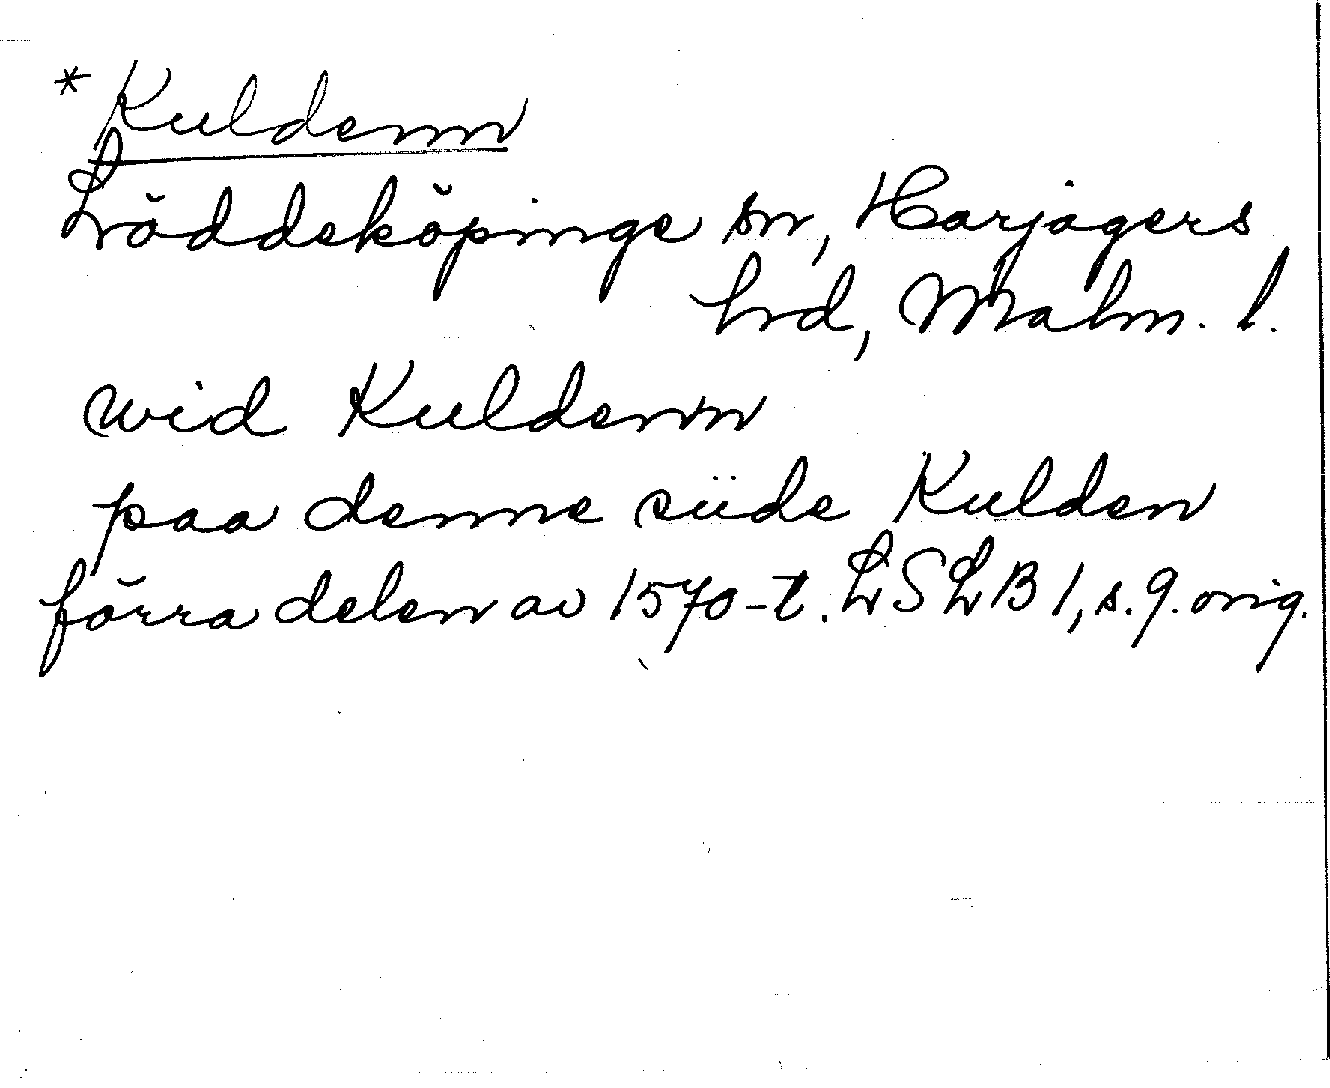 *Kuldenn
Löddeköpinge sn, Harjagers
hrd, Malm. l.
wid Kuldenn
paa denne siide Kulden
förra delen av 1570-t. LSLB 1, s. 9. orig.